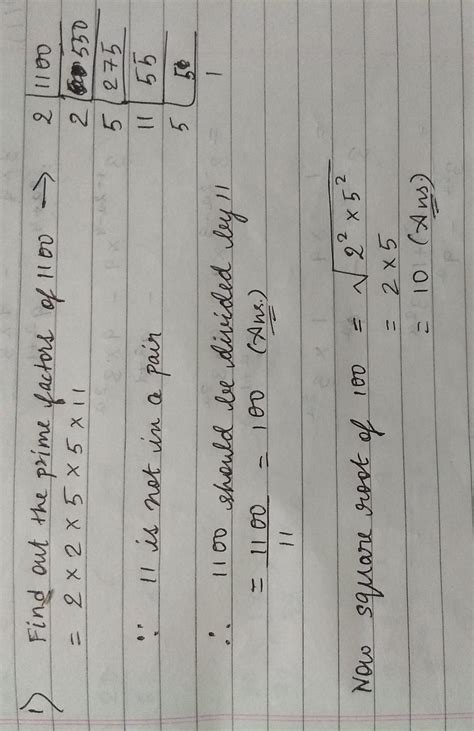 i) Find out the prime factors of 1100 →
= 2 × 2 × 5 × 5 × 11
2 | 1100
2 | 550
5 | 275
11 | 55
5 | 5
1
∵ 11 is not in a pair
∴ 1100 should be divided by 11
= 1100/11 = 100 (Ans.)
Now square root of 100 = √2² × 5²
= 2 × 5
= 10 (Ans.)